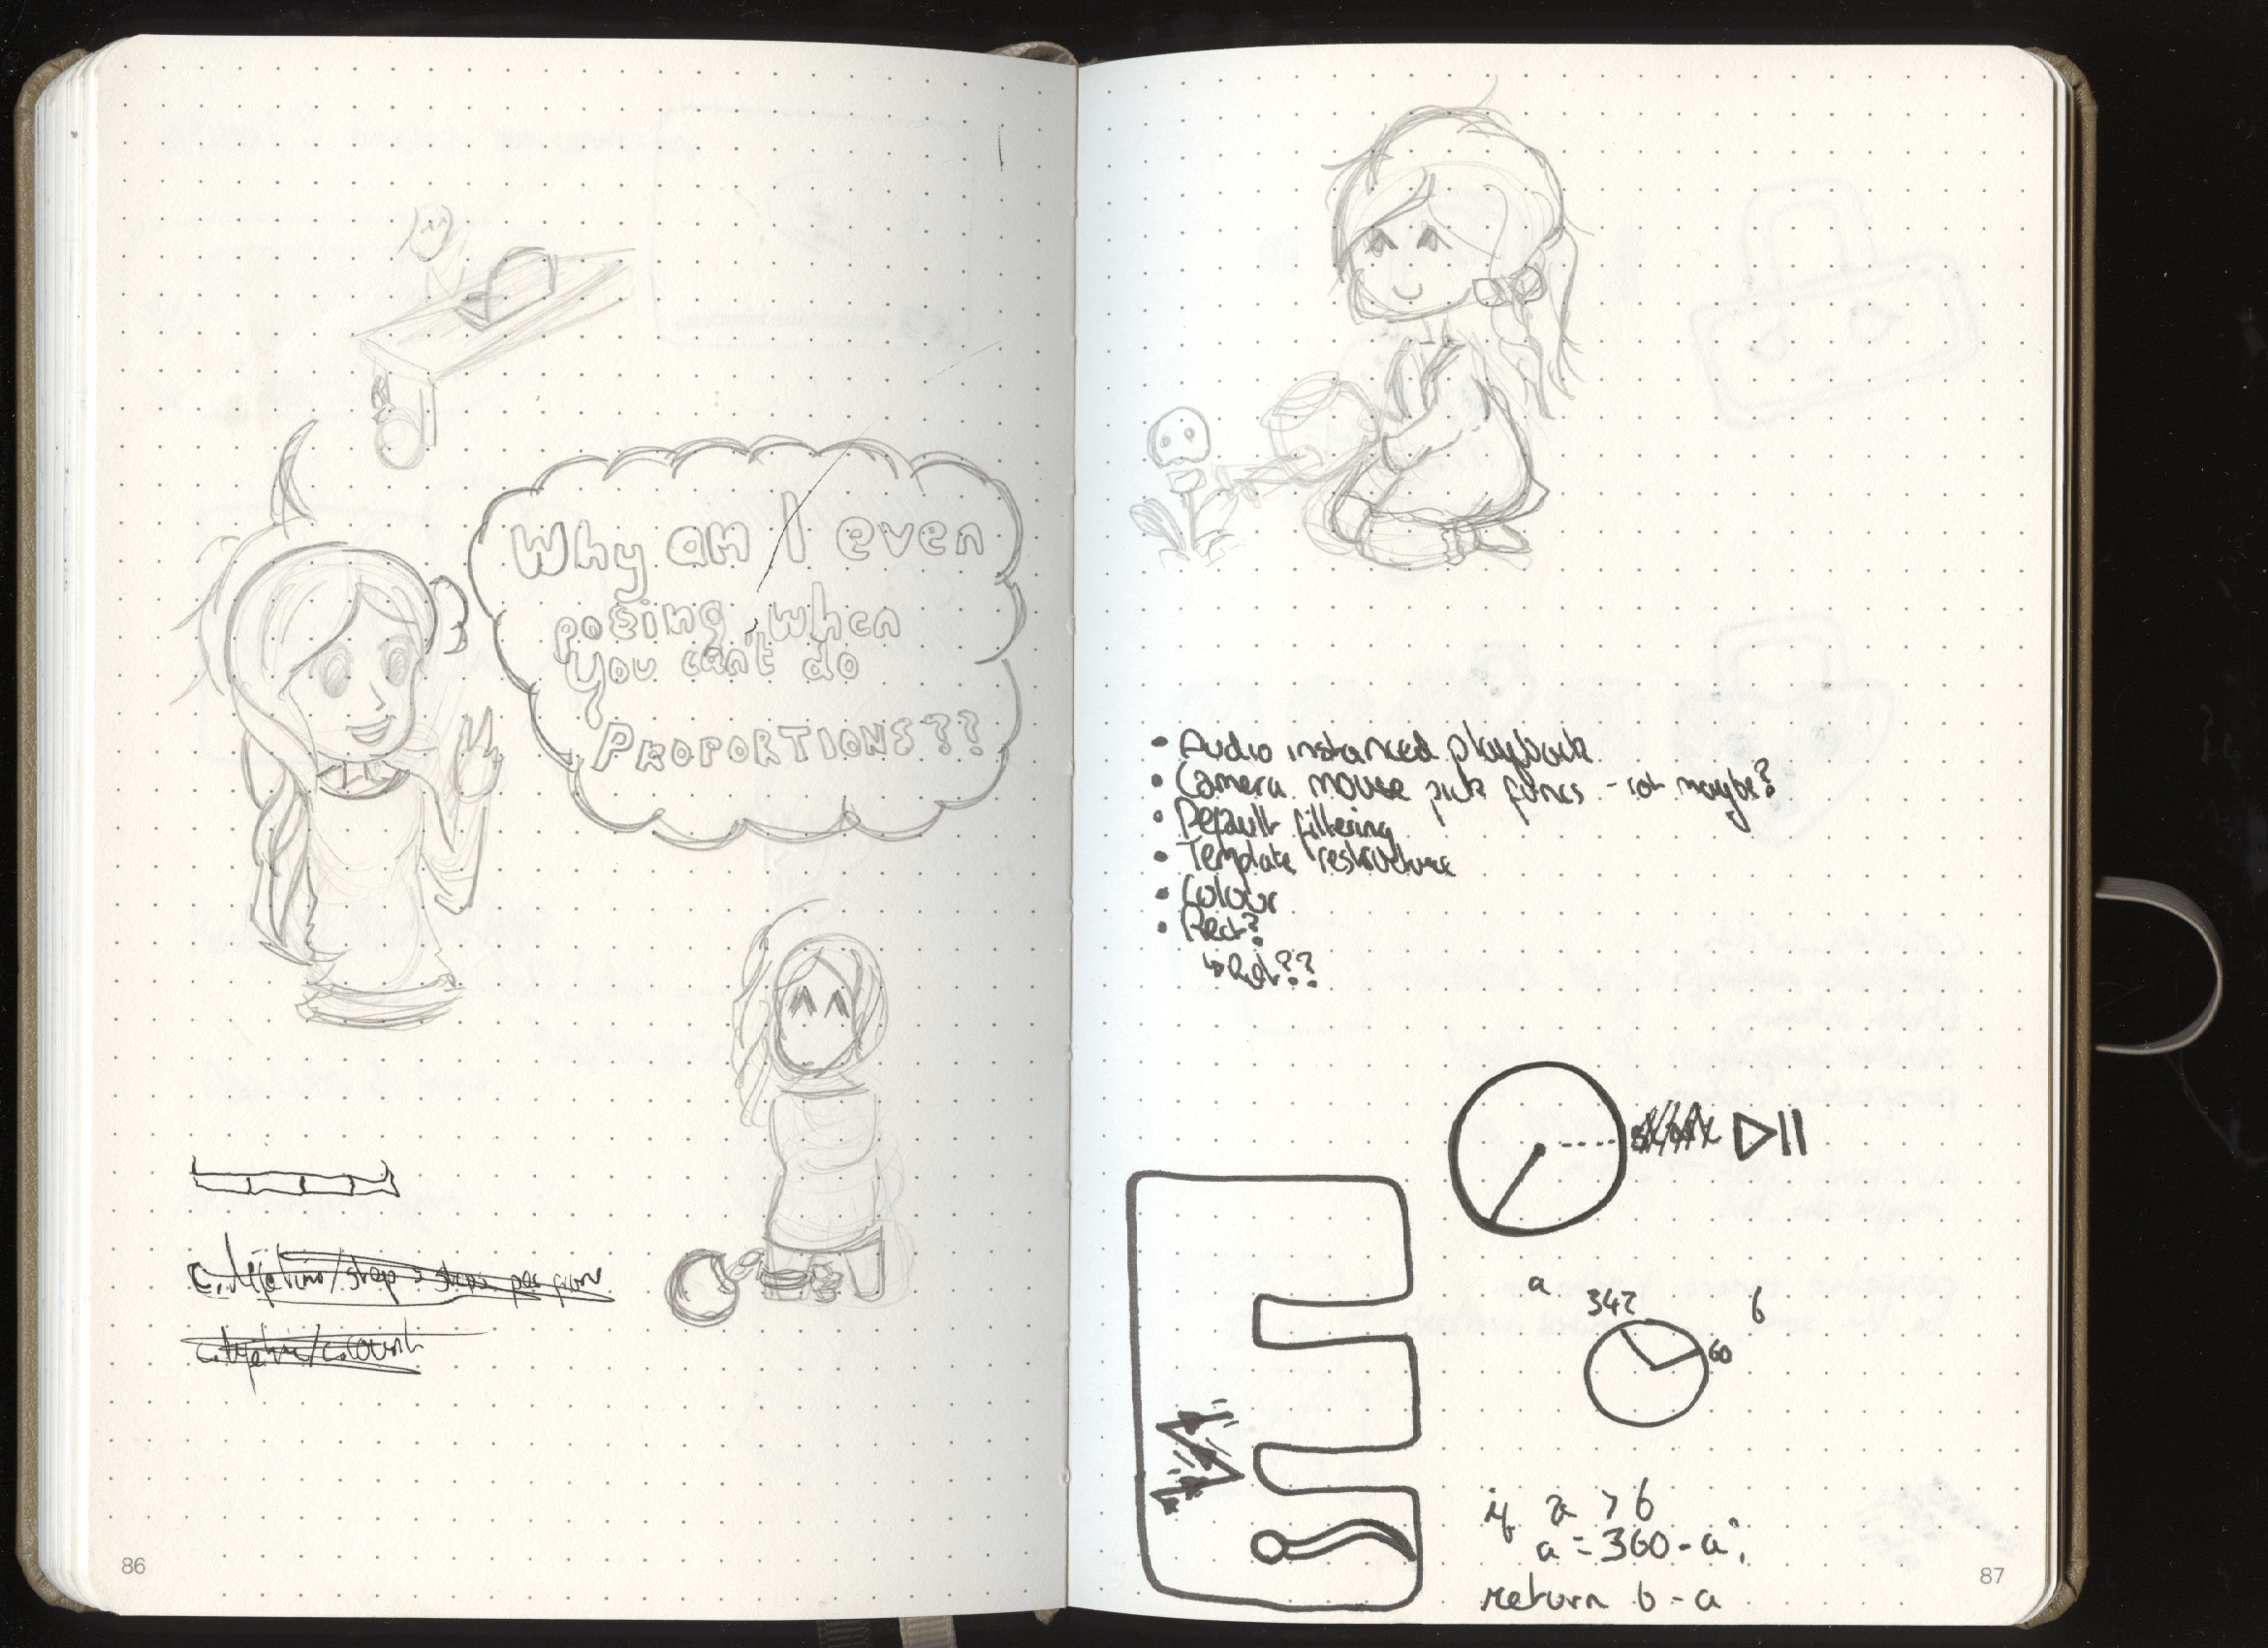 Why am I even
posing, when
you can't do
PROPORTIONS??
86
• Audio instanced playback
• Camera mouse pick funcs - rot maybe?
• Default filtering
• Template restructure
• Colour
• Rect?
↳ Rot??
a
342
b
60
if a > b
a = 360 - a;
return b - a
87